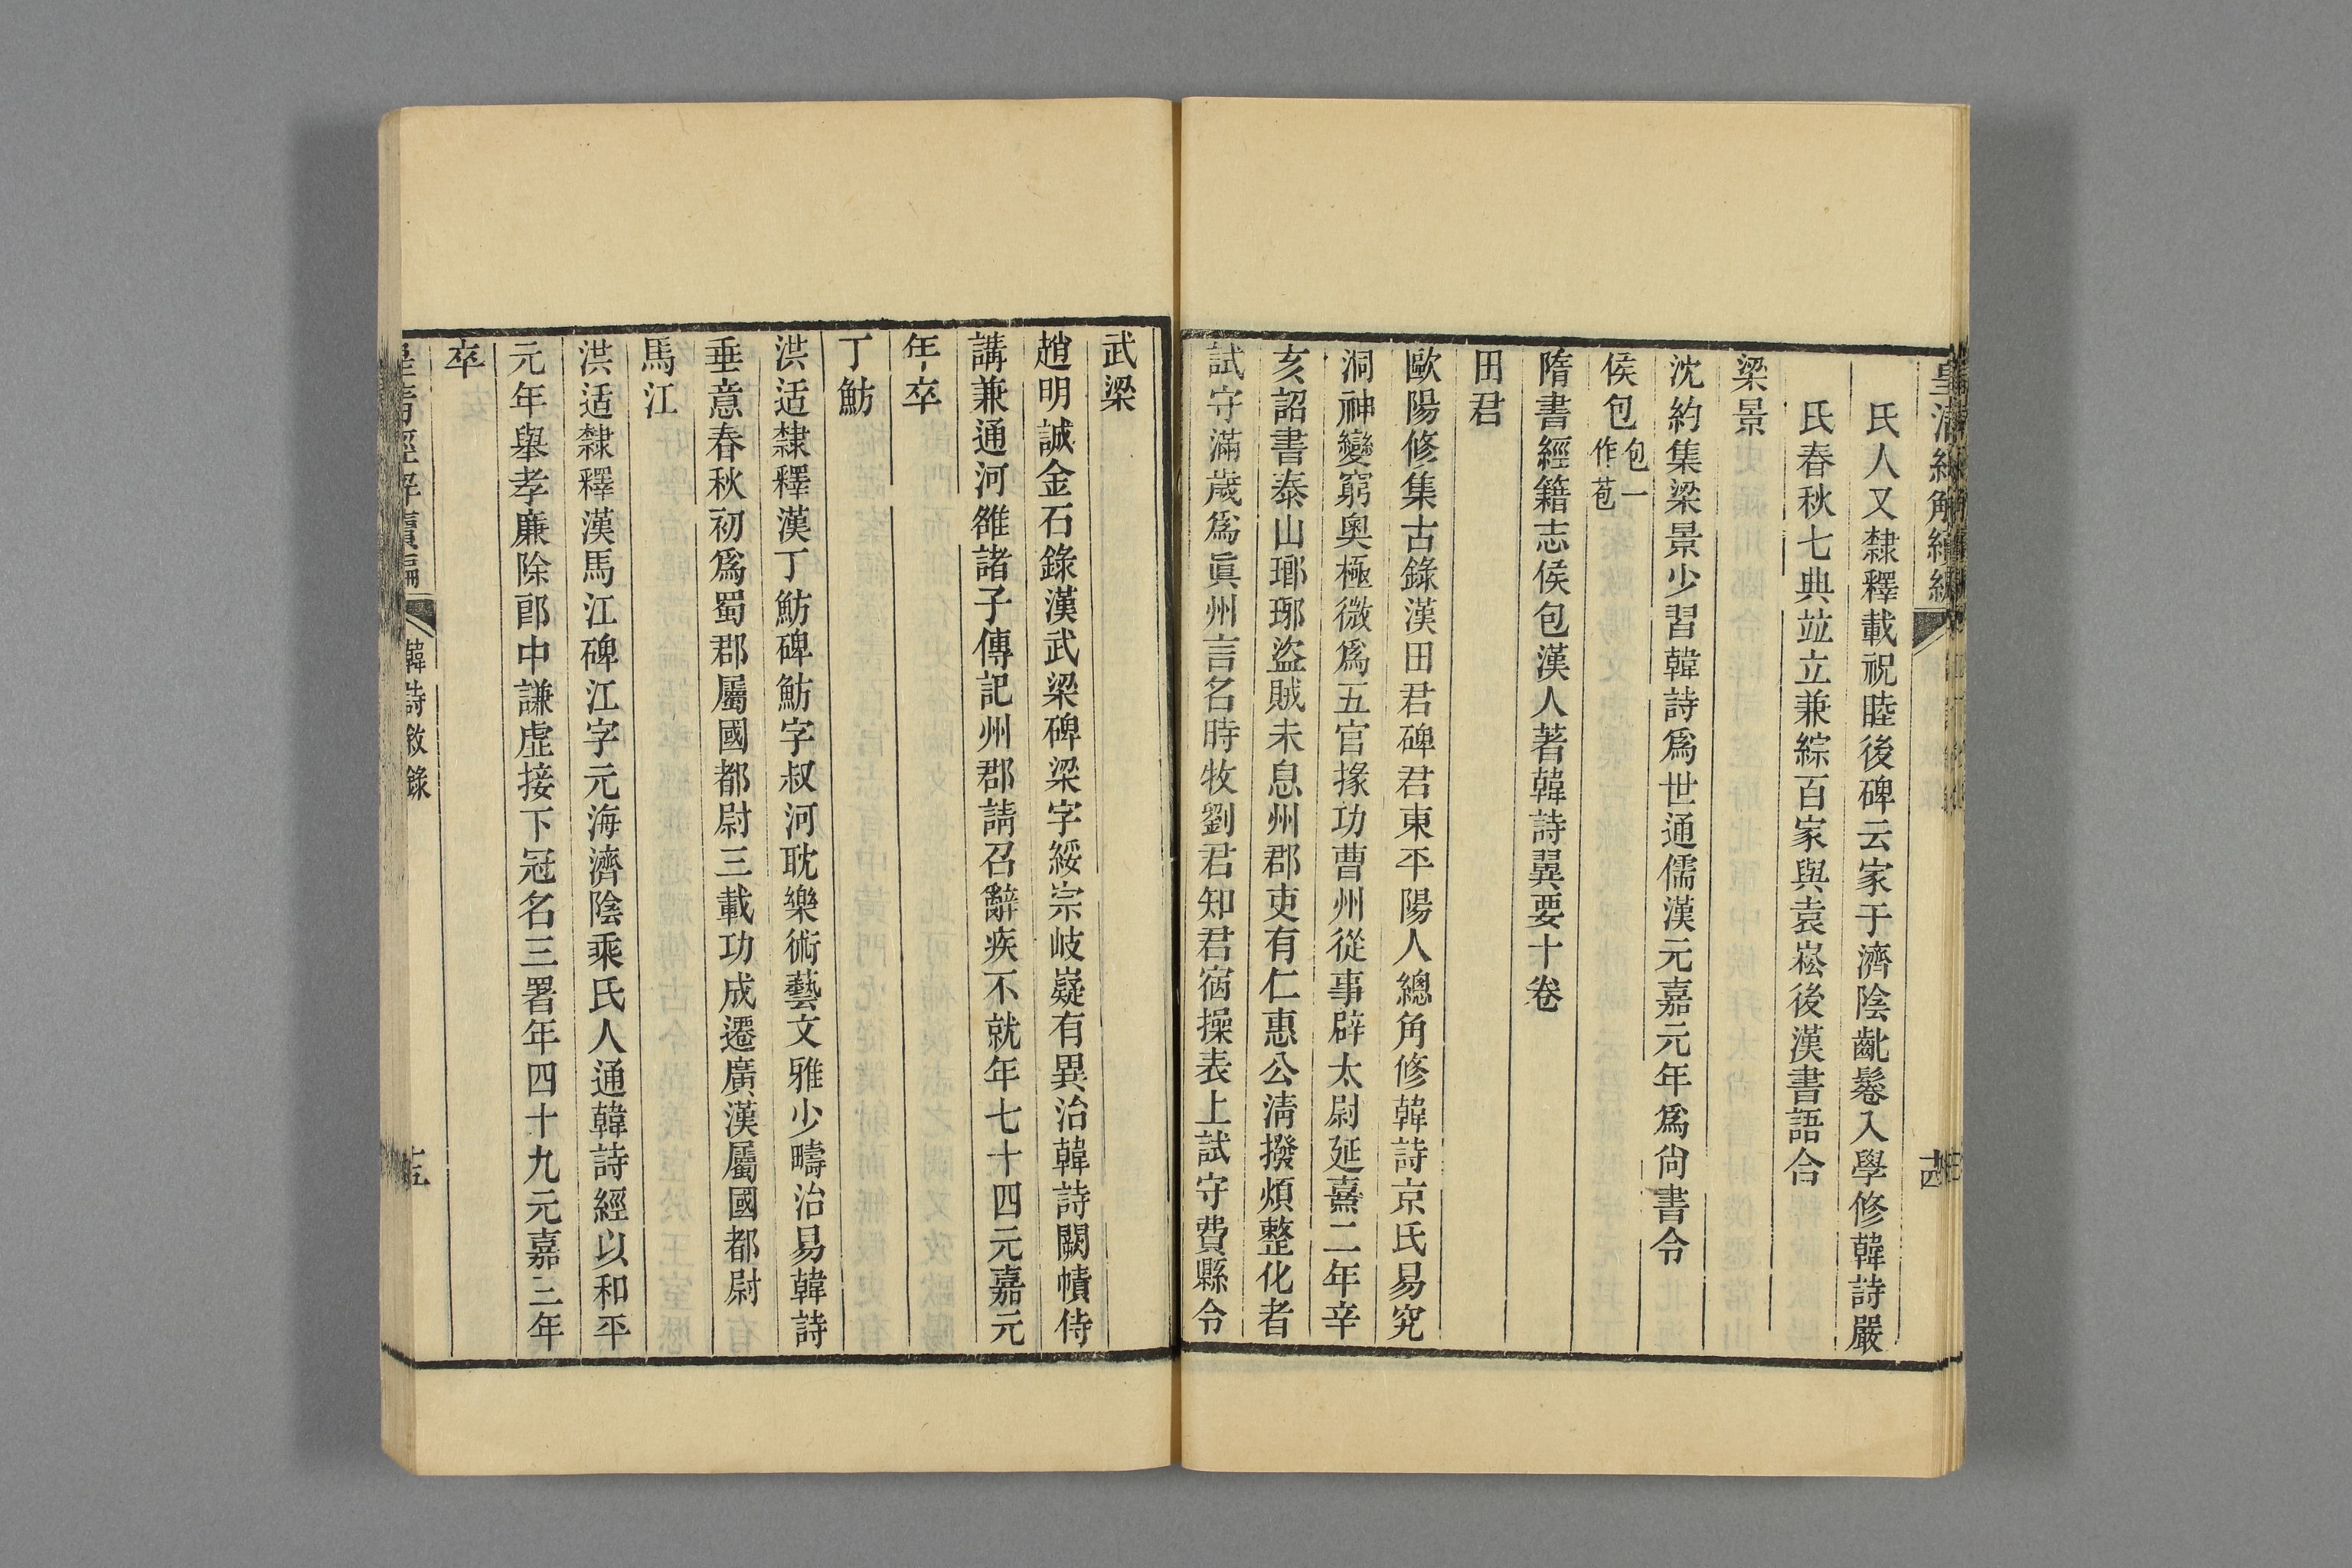 皇清經解續編
氏人又隸釋載祝睦後碑云家于濟陰齔鬈入學修韓詩嚴
氏春秋七典竝立兼綜百家與袁崧後漢書語合
梁景
沈約集梁景少習韓詩爲世通儒漢元嘉元年爲尙書令
侯包包一作苞
隋書經籍志侯包漢人著韓詩翼要十卷
田君
歐陽修集古錄漢田君碑君東平陽人總角修韓詩京氏易究
洞神變窮奧極微爲五官掾功曹州從事辟太尉延熹二年辛
亥詔書泰山瑯琊盜賊未息州郡吏有仁惠公淸撥煩整化者
試守滿歲爲眞州言名時牧劉君知君宿操表上試守費縣令
武梁
趙明誠金石錄漢武梁碑梁字綏宗岐嶷有異治韓詩闕幘侍
講兼通河雒諸子傳記州郡請召辭疾不就年七十四元嘉元
年卒
丁魴
洪适隸釋漢丁魴碑魴字叔河耽樂術藝文雅少疇治易韓詩
垂意春秋初爲蜀郡屬國都尉三載功成遷廣漢屬國都尉
馬江
洪适隸釋漢馬江碑江字元海濟陰乘氏人通韓詩經以和平
元年舉孝廉除郎中謙虛接下冠名三署年四十九元嘉三年
卒
皇清經解續編 韓詩敘錄